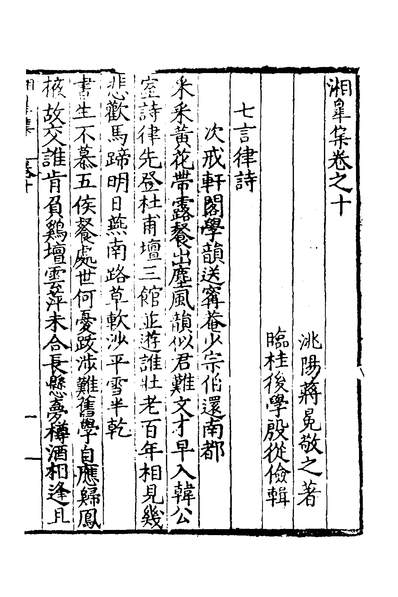 湘臯集卷之十
洮陽蔣冕敬之著
臨桂後學殷從儉輯
七言律詩
次戒軒閣學韻送甯菴少宗伯還南都
采采黃花帶露餐出塵風韻似君難文才早入韓公
室詩律先登杜甫壇三館並遊誰壯老百年相見幾
悲歡馬蹄明日燕南路草軟沙平雪半乾
書生不慕五侯餐處世何憂跋涉難舊學自應歸鳳
掖故交誰肯負鷄壇雲萍未合長懸夢樽酒相逢且